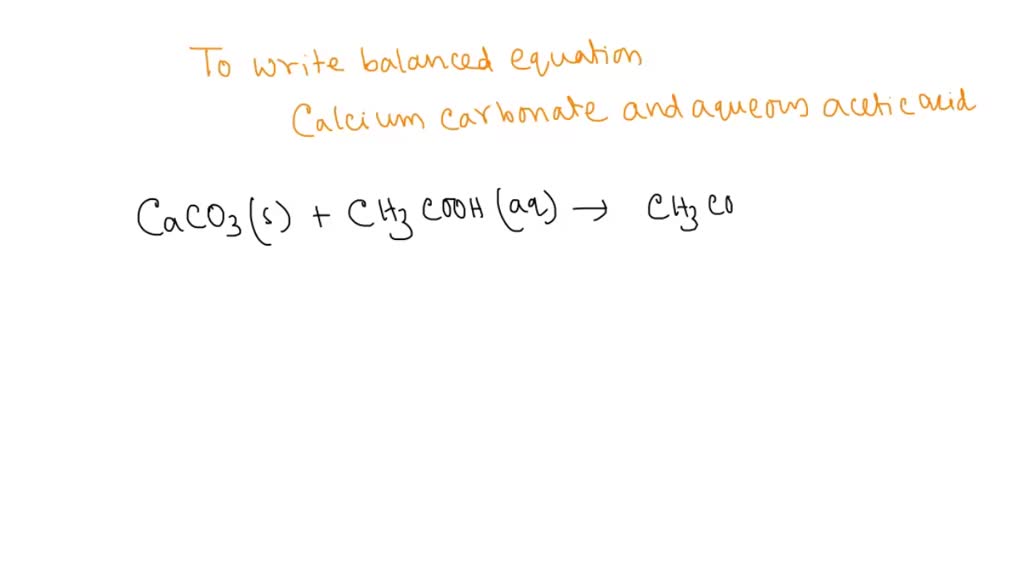 To write balanced equation
Calcium carbonate and aqueous acetic acid
CaCO3(s) + CH3COOH(aq) → CH3CO